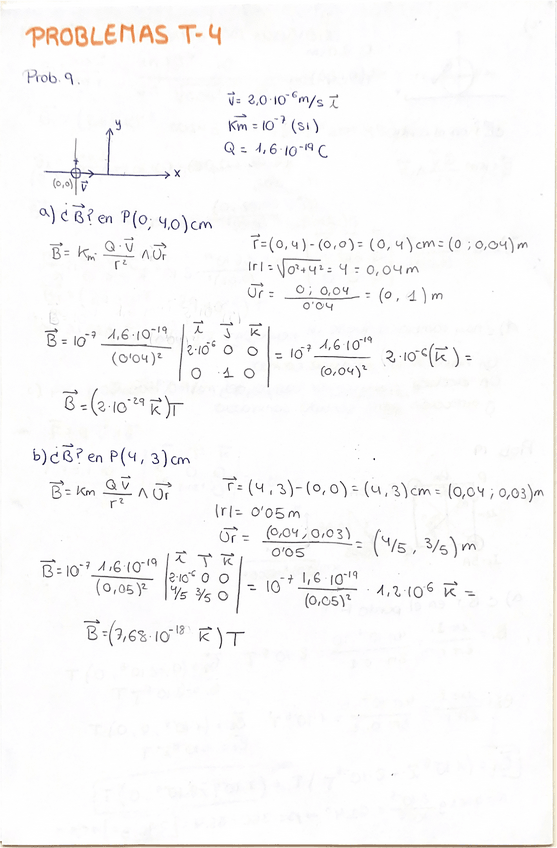 PROBLEMAS T-4
Prob. 9.
v⃗ = 2,0·10⁻⁶ m/s i⃗
K⃗m = 10⁻⁷ (SI)
Q = 1,6·10⁻¹⁹ C
y
x
(0,0)
v⃗
a) ¿B⃗? en P(0; 4,0) cm
B⃗ = Km · Q·v⃗ / r² ∧ U⃗r
r⃗ = (0,4) - (0,0) = (0,4) cm = (0; 0,04) m
|r| = √0²+4² = 4 = 0,04 m
U⃗r = 0; 0,04 / 0'04 = (0, 1) m
B⃗ = 10⁻⁷ 1,6·10⁻¹⁹ / (0'04)² | i⃗ j⃗ k⃗ | 2·10⁻⁶ 0 0 | 0 1 0 | = 10⁻⁷ 1,6·10⁻¹⁹ / (0,04)² 2·10⁻⁶ (k⃗) =
B⃗ = (2·10⁻²⁹ k⃗) T
b) ¿B⃗? en P(4, 3) cm
B⃗ = Km Q v⃗ / r² ∧ U⃗r
r⃗ = (4, 3) - (0,0) = (4, 3) cm = (0,04; 0,03) m
|r| = 0'05 m
U⃗r = (0,04; 0,03) / 0'05 = (4/5, 3/5) m
B⃗ = 10⁻⁷ 1,6·10⁻¹⁹ / (0,05)² | i⃗ j⃗ k⃗ | 2·10⁻⁶ 0 0 | 4/5 3/5 0 | = 10⁻⁷ 1,6·10⁻¹⁹ / (0,05)² · 1,2·10⁶ k⃗ =
B⃗ = (7,68·10⁻¹⁸ k⃗) T